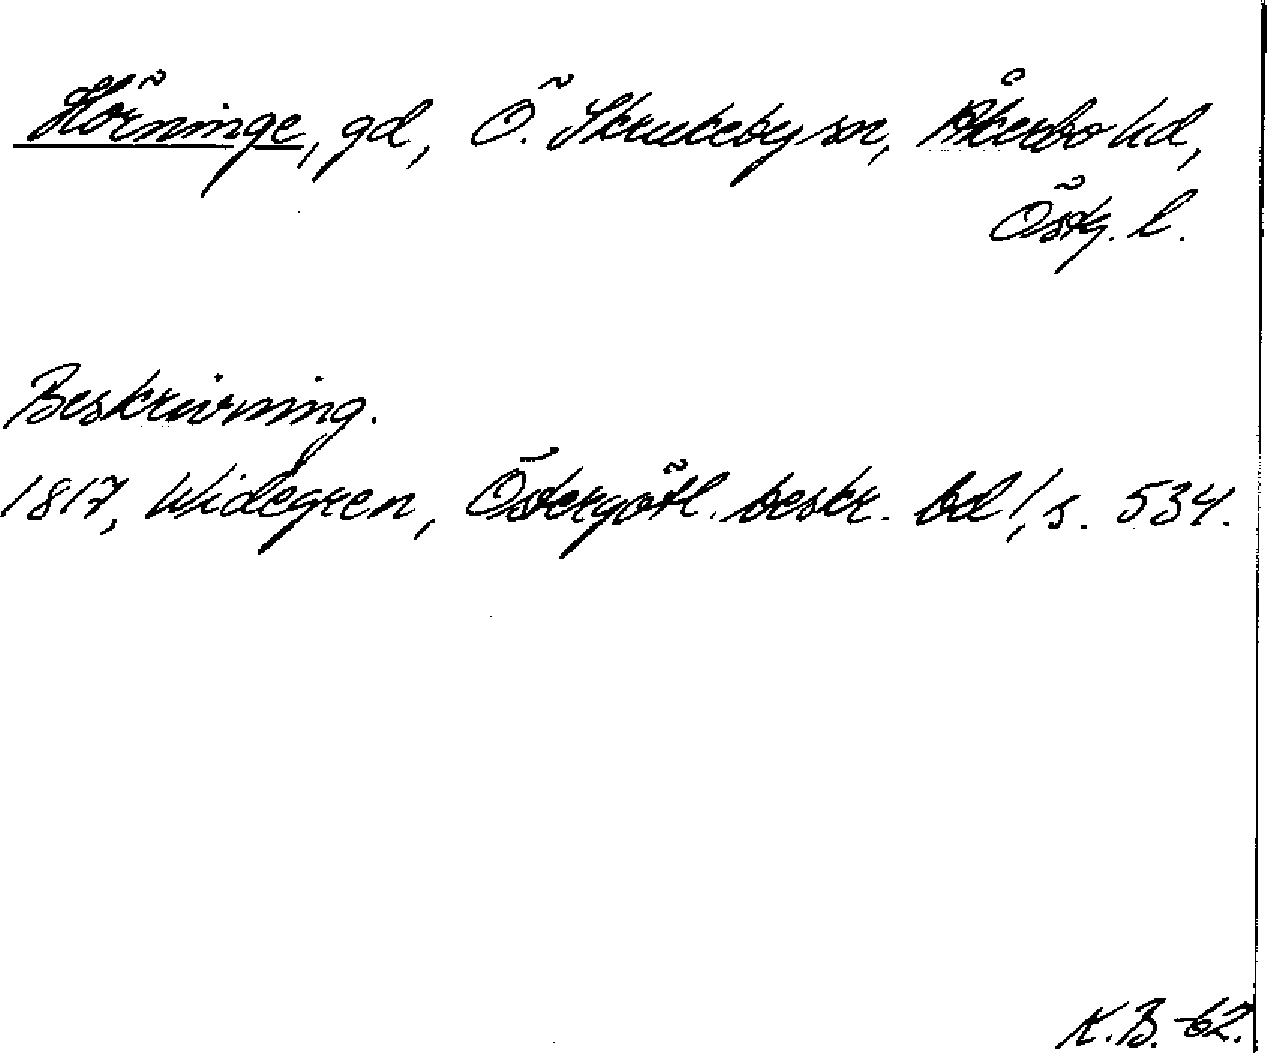 Hörninge, gd, Ö. Skrukeby sn, Åkerbo hd,
Östg. l.
Beskrivning.
1817, Widegren, Östergötl. beskr. bd 1, s. 534.
K.B. -62.